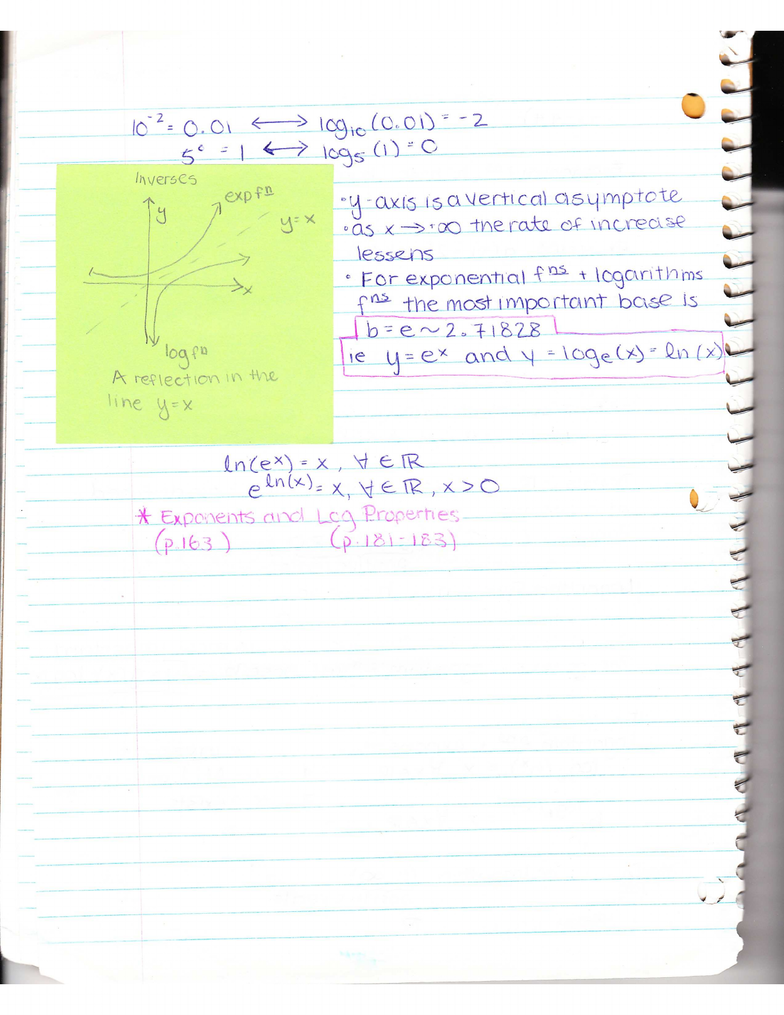 10⁻² = 0.01 ⟷ log₁₀(0.01) = -2
5⁰ = 1 ⟷ log₅(1) = 0
Inverses
y
exp fⁿ
y = x
x
log fⁿ
A reflection in the
line y=x
• y-axis is a vertical asymptote
• as x → +∞ the rate of increase
lessens
• For exponential fⁿˢ + logarithms
fⁿˢ the most important base is
b = e ~ 2.71828
ie y = eˣ and y = logₑ(x) = ln(x)
ln(eˣ) = x, ∀ ∈ ℝ
e^ln(x) = x, ∀ ∈ ℝ, x > 0
* Exponents and Log Properties
(p.163) (p.181-183)